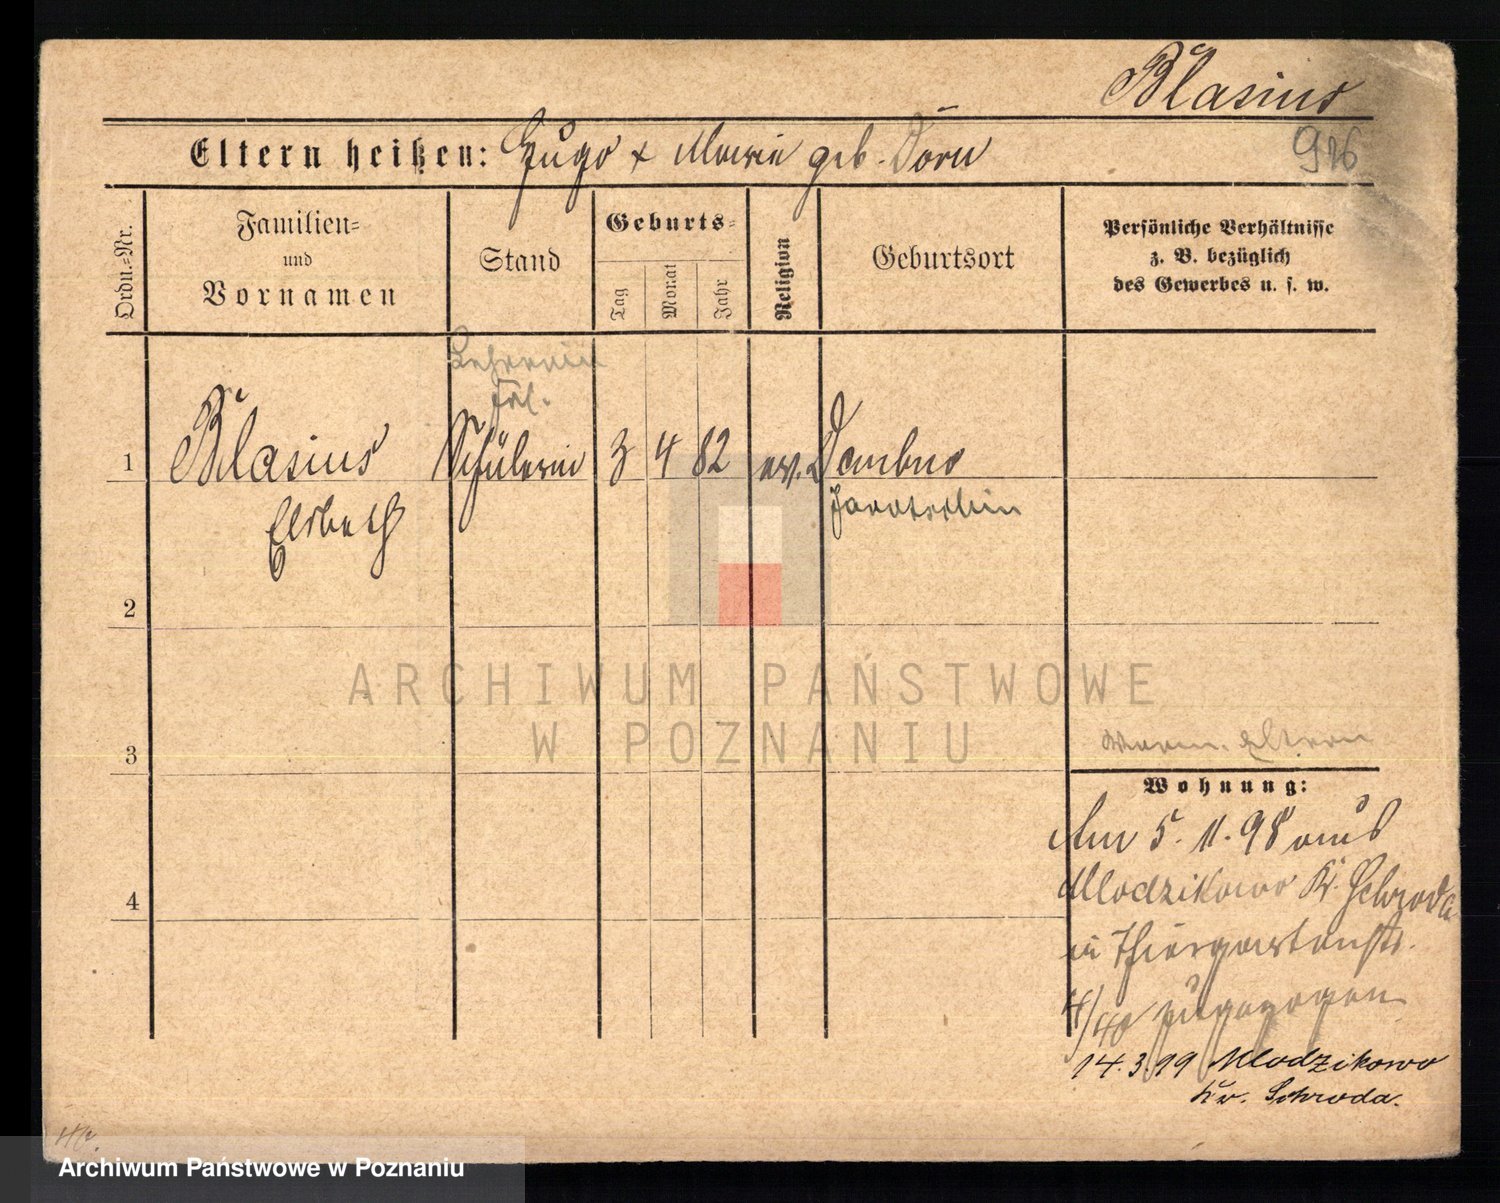 Blasius
Eltern heißen: Hugo + Marie geb. Dörn
926
Ordn.=Nr.
Familien=
und
Vornamen
Stand
Geburts=
Tag
Monat
Jahr
Religion
Geburtsort
Persönliche Verhältnisse
z. B. bezüglich
des Gewerbes u. s. w.
Lehrerin
Frl.
1 Blasius Schülerin 3 4 82 ev. Dembno
Elsbeth Jarotschin
2
3
Eltern
Wohnung:
Am 5. 11. 98 aus
Mlodzikowo Kr. Schroda
in Thiergartenstr.
zugezogen
4
14. 3. 99 Mlodzikowo
Kr. Schroda.
ARCHIWUM PAŃSTWOWE
W POZNANIU
Archiwum Państwowe w Poznaniu